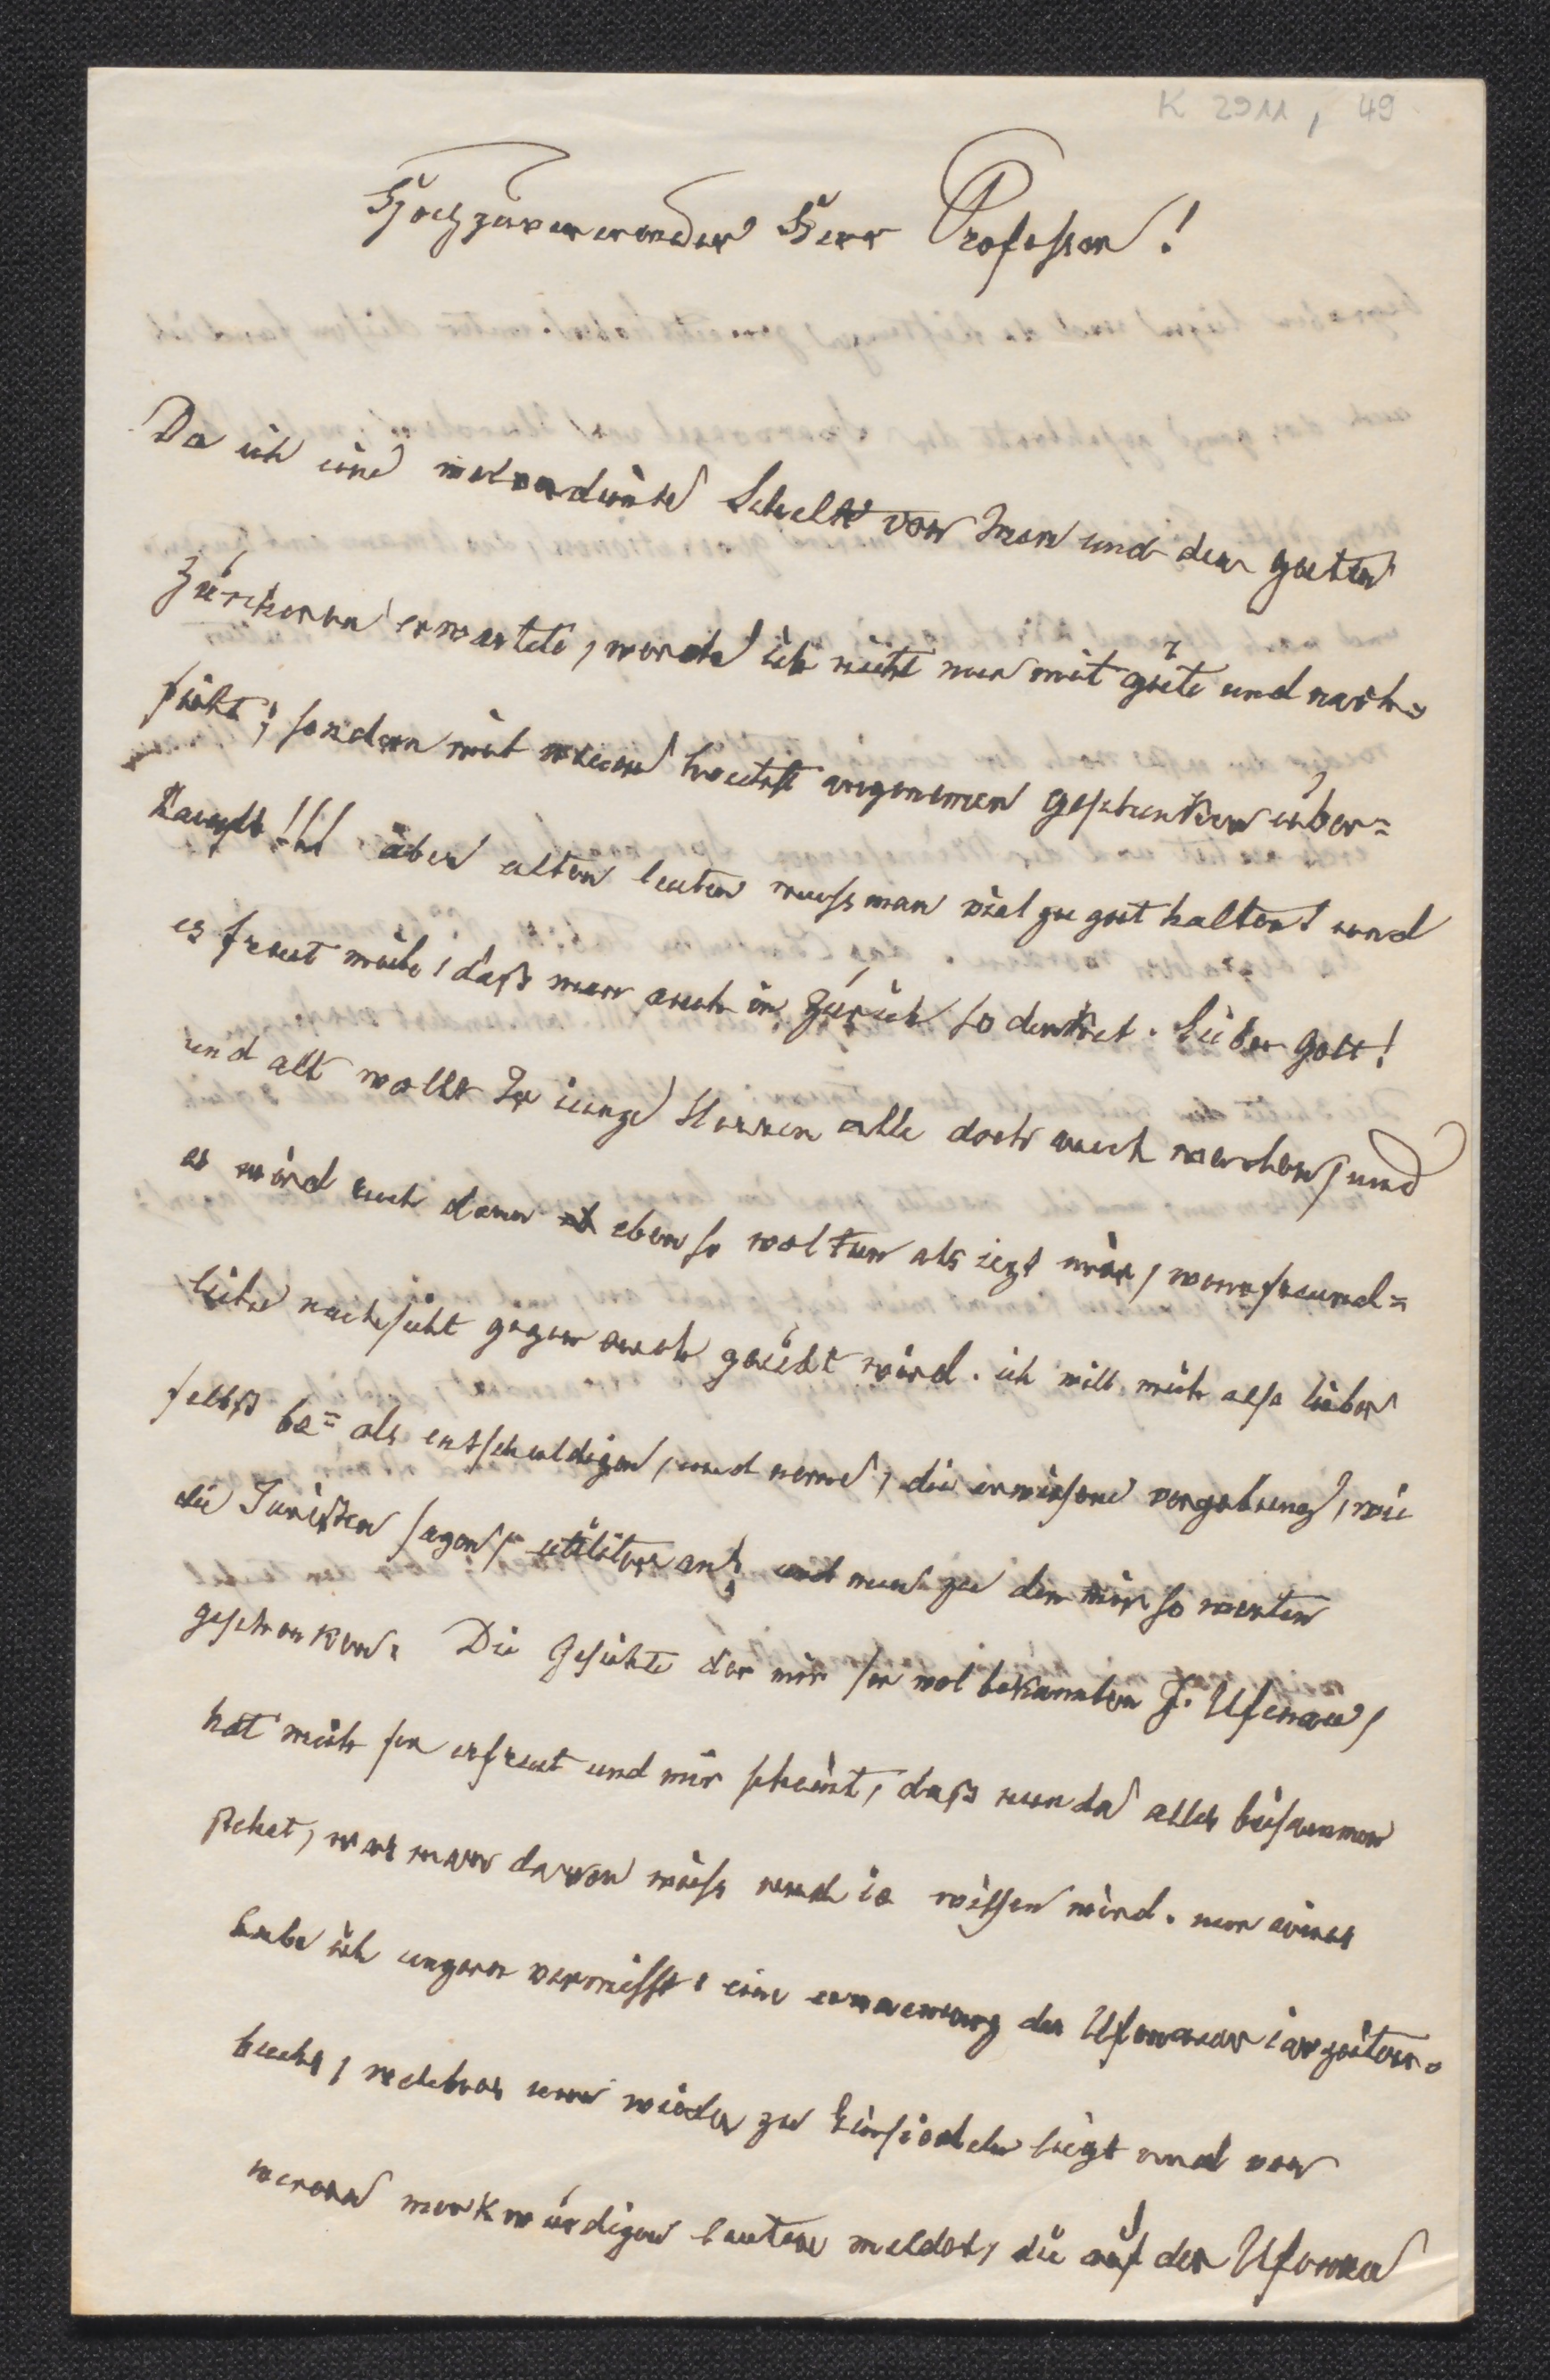 K 2911, 49
Hochzuvererender Herr Professor!
Da ich eine wolverdiente Schelte von Inen und den guten
Zürchern erwartete, werde ich nicht nur mit güte und nach=
sicht, sondern mit meinen hoechst angenemen geschenken über=
haeuft!!! aber alten leuten muss man viel zu gut halten! und
es freut mich, daß man auch in Zürich so denket. lieber Gott!
und alt wollt Ir iunge Herren alle doch auch werden, und
es wird euch dann eben so wol tun als iezt mir, wenn freund=
liche nachsicht gegen euch geübt wird. ich will mich also lieber
selbst be= als entschuldigen, und neme, die erwisene vergebung, wie
die Juristen sagen, utiliter an! und nun zu den mir so werten
geschenken. Die Geschichte der mir ser wol bekannten J. Ufenau,
hat mich ser erfreut und mir scheint, daß nun da alles beisammen
stehet, was man davon weiss und ie wissen wird. nur eines
habe ich ungern vermisst: eine ernaenung des Ufenauer iarzeiten=
buchs, welches nun wieder zu Einsiedeln liegt und von
meren merkwürdigen leuten meldet, die auf der Ufenau